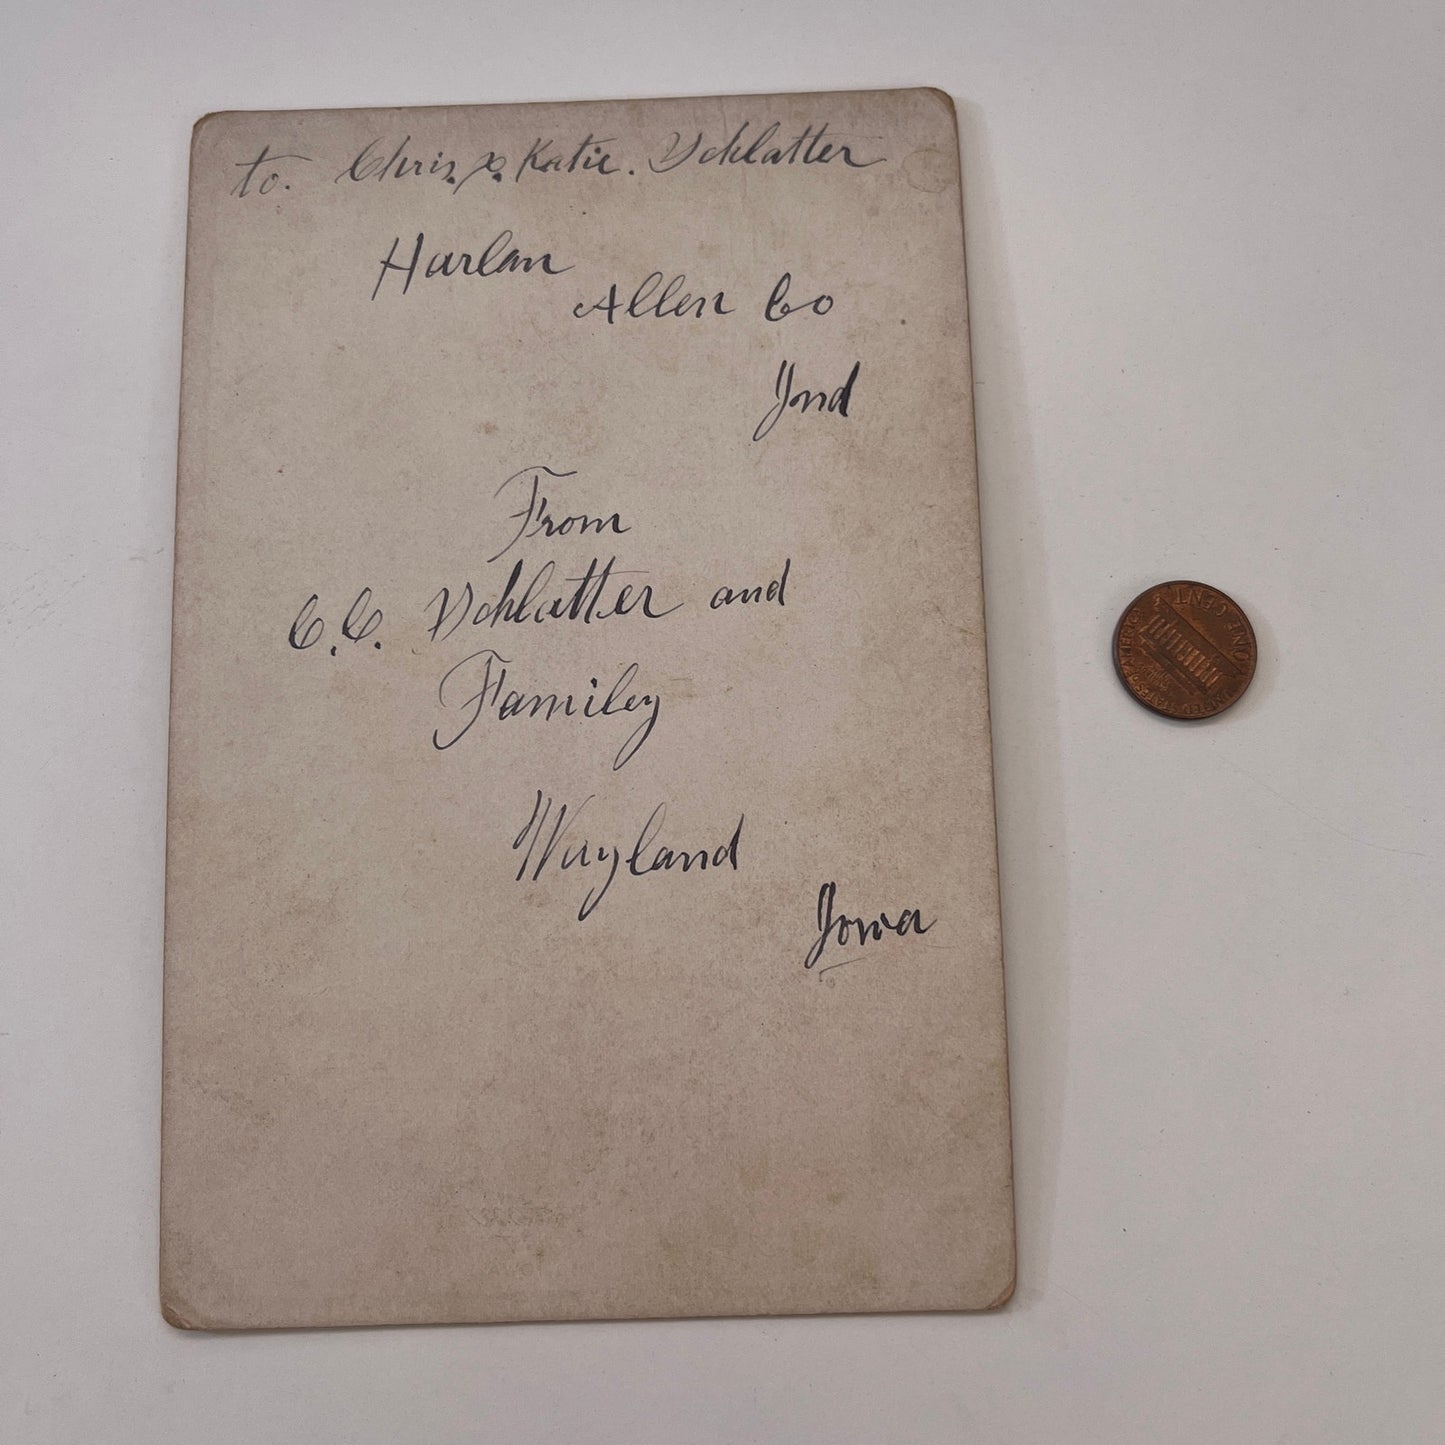 to. Chris. &. Katie. Schlatter
Harlan
Allen Co
Ind
From
C. C. Schlatter and
Familey
Wayland
Iowa
UNITED STATES OF AMERICA
ONE CENT